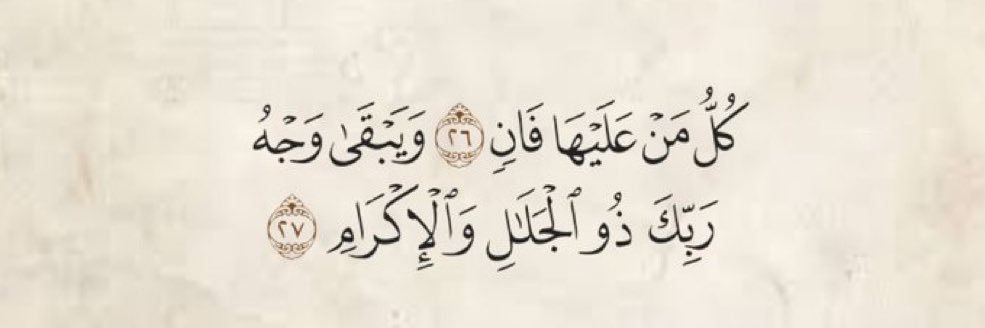 كُلُّ مَنْ عَلَيْهَا فَانٍ ٢٦ وَيَبْقَىٰ وَجْهُ
رَبِّكَ ذُو ٱلْجَلَٰلِ وَٱلْإِكْرَامِ ٢٧